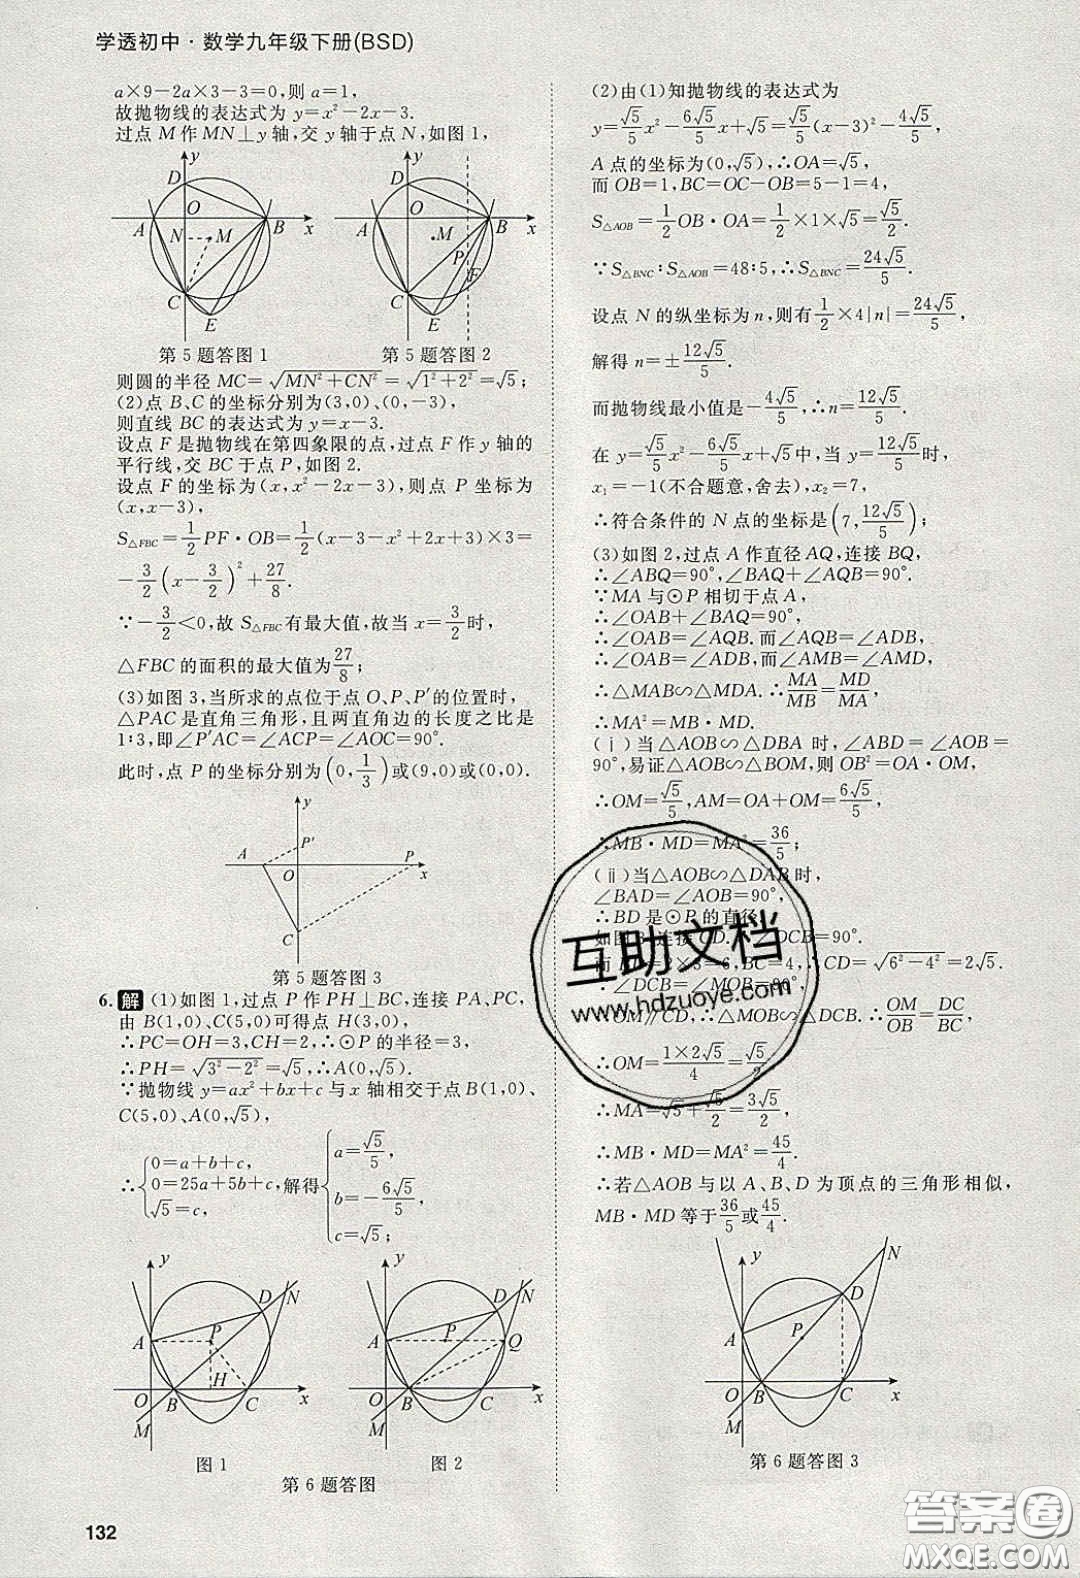 学透初中·数学九年级下册(BSD)
a×9-2a×3-3=0,则 a=1,
故抛物线的表达式为 y=x²-2x-3.
过点 M 作 MN⊥y 轴,交 y 轴于点 N,如图 1,
y
D
O
A
B
x
N
M
C
E
y
D
O
A
B
x
M
P
F
C
E
第 5 题答图 1
第 5 题答图 2
则圆的半径 MC=√(MN²+CN²)=√(1²+2²)=√5;
(2)点 B、C 的坐标分别为(3,0)、(0,-3),
则直线 BC 的表达式为 y=x-3.
设点 F 是抛物线在第四象限的点,过点 F 作 y 轴的
平行线,交 BC 于点 P,如图 2.
设点 F 的坐标为(x,x²-2x-3),则点 P 坐标为
(x,x-3),
S△FBC=1/2 PF·OB=1/2(x-3-x²+2x+3)×3=
-3/2(x-3/2)²+27/8.
∵-3/2<0,故 S△FBC有最大值,故当 x=3/2时,
△FBC 的面积的最大值为27/8;
(3)如图 3,当所求的点位于点 O、P、P′的位置时,
△PAC 是直角三角形,且两直角边的长度之比是
1∶3,即∠P′AC=∠ACP=∠AOC=90°.
此时,点 P 的坐标分别为(0,1/3)或(9,0)或(0,0).
y
P′
A
O
P
x
C
第 5 题答图 3
6. 解 (1)如图 1,过点 P 作 PH⊥BC,连接 PA、PC,
由 B(1,0)、C(5,0)可得点 H(3,0),
∴PC=OH=3,CH=2,∴⊙P 的半径=3,
∴PH=√(3²-2²)=√5,∴A(0,√5).
∵抛物线 y=ax²+bx+c 与 x 轴相交于点 B(1,0)、
C(5,0)、A(0,√5),
∴{0=a+b+c, 0=25a+5b+c, √5=c, 解得{a=√5/5, b=-6√5/5, c=√5;
y
D
N
A
P
H
O
B
C
x
M
图 1
y
D
N
A
P
Q
O
B
C
x
M
图 2
第 6 题答图
132
(2)由(1)知抛物线的表达式为
y=√5/5 x²-6√5/5 x+√5=√5/5(x-3)²-4√5/5,
A 点的坐标为(0,√5),∴OA=√5,
而 OB=1,BC=OC-OB=5-1=4,
S△AOB=1/2 OB·OA=1/2×1×√5=√5/2.
∵S△BNC∶S△AOB=48∶5,∴S△BNC=24√5/5.
设点 N 的纵坐标为 n,则有1/2×4|n|=24√5/5,
解得 n=±12√5/5.
而抛物线最小值是-4√5/5,∴n=12√5/5.
在 y=√5/5 x²-6√5/5 x+√5中,当 y=12√5/5时,
x₁=-1(不合题意,舍去),x₂=7,
∴符合条件的 N 点的坐标是(7,12√5/5);
(3)如图 2,过点 A 作直径 AQ,连接 BQ,
∴∠ABQ=90°,∠BAQ+∠AQB=90°.
∵MA 与⊙P 相切于点 A,
∴∠OAB+∠BAQ=90°,
∴∠OAB=∠AQB.而∠AQB=∠ADB,
∴∠OAB=∠ADB,而∠AMB=∠AMD,
∴△MAB∽△MDA.∴MA/MB=MD/MA.
∴MA²=MB·MD.
(ⅰ)当△AOB∽△DBA 时,∠ABD=∠AOB=
90°,易证△AOB∽△BOM,则 OB²=OA·OM,
∴OM=√5/5,AM=OA+OM=6√5/5,
∴MB·MD=MA²=36/5;
(ⅱ)当△AOB∽△DAB 时,
∠BAD=∠AOB=90°,
∴BD 是⊙P 的直径.
如图 3,连接 CD.∴∠DCB=90°.
而 BD=2×3=6,BC=4,∴CD=√(6²-4²)=2√5.
∵∠DCB=∠MOB=90°,
∴OM∥CD,∴△MOB∽△DCB.∴OM/OB=DC/BC.
∴OM=1×2√5/4=√5/2.
∴MA=√5+√5/2=3√5/2,
∴MB·MD=MA²=45/4.
∴若△AOB 与以 A、B、D 为顶点的三角形相似,
MB·MD 等于36/5或45/4.
y
N
D
A
P
O
B
C
x
M
第 6 题答图 3
互助文档
www.hdzuoye.com
答案圈
MXQE.COM